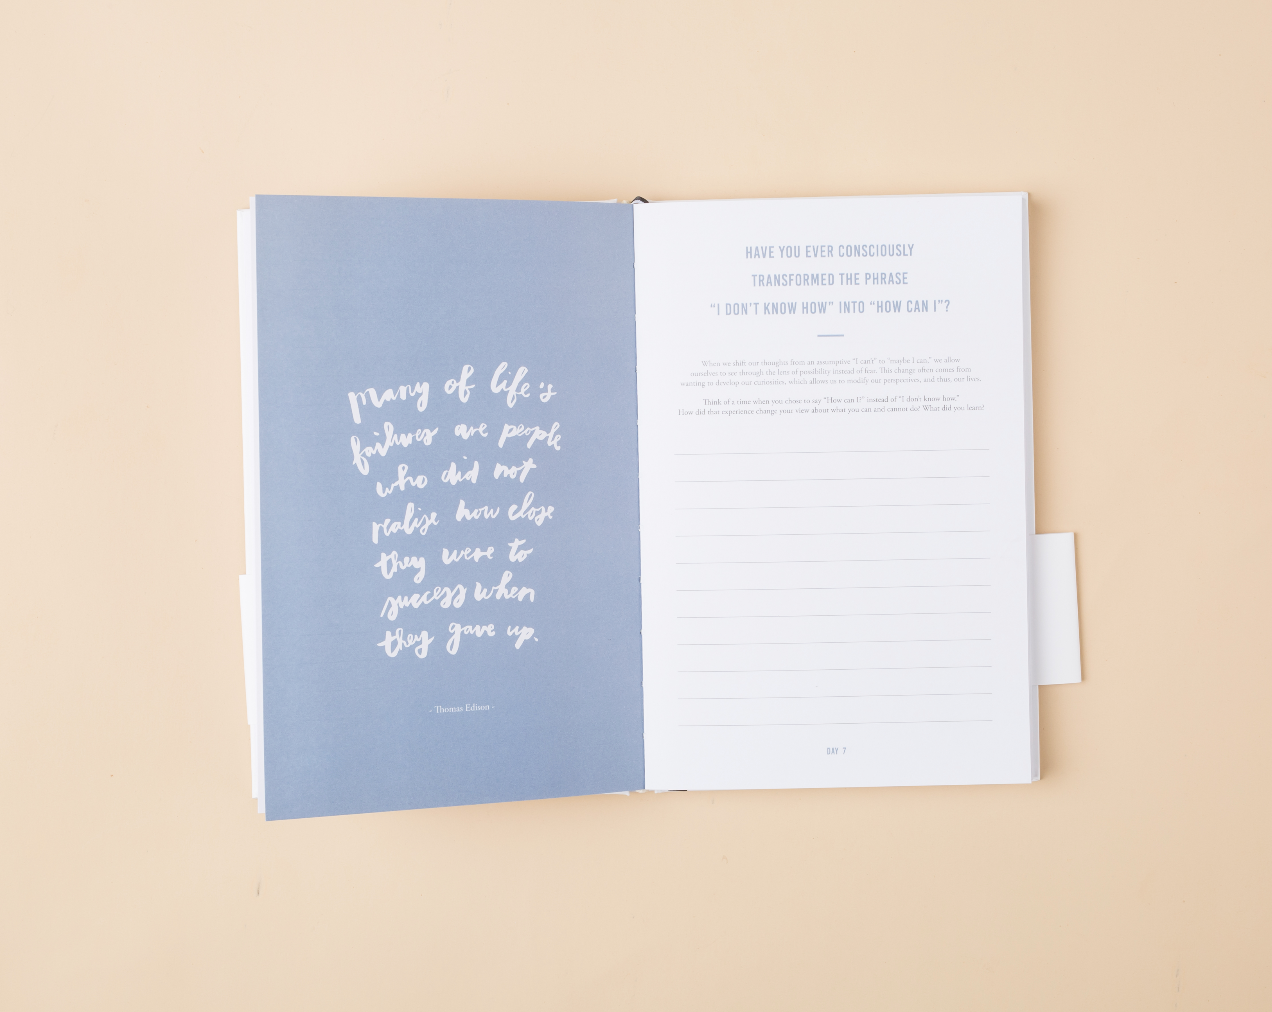 many of life's
failures are people
who did not
realize how close
they were to
success when
they gave up.
- Thomas Edison -
HAVE YOU EVER CONSCIOUSLY
TRANSFORMED THE PHRASE
“I DON’T KNOW HOW” INTO “HOW CAN I”?
When we shift our thoughts from an assumptive “I can’t” to “maybe I can,” we allow
ourselves to see through the lens of possibility instead of fear. This change often comes from
wanting to develop our curiosities, which allows us to modify our perspectives, and thus, our lives.
Think of a time when you chose to say “How can I?” instead of “I don’t know how.”
How did that experience change your view about what you can and cannot do? What did you learn?
DAY 7